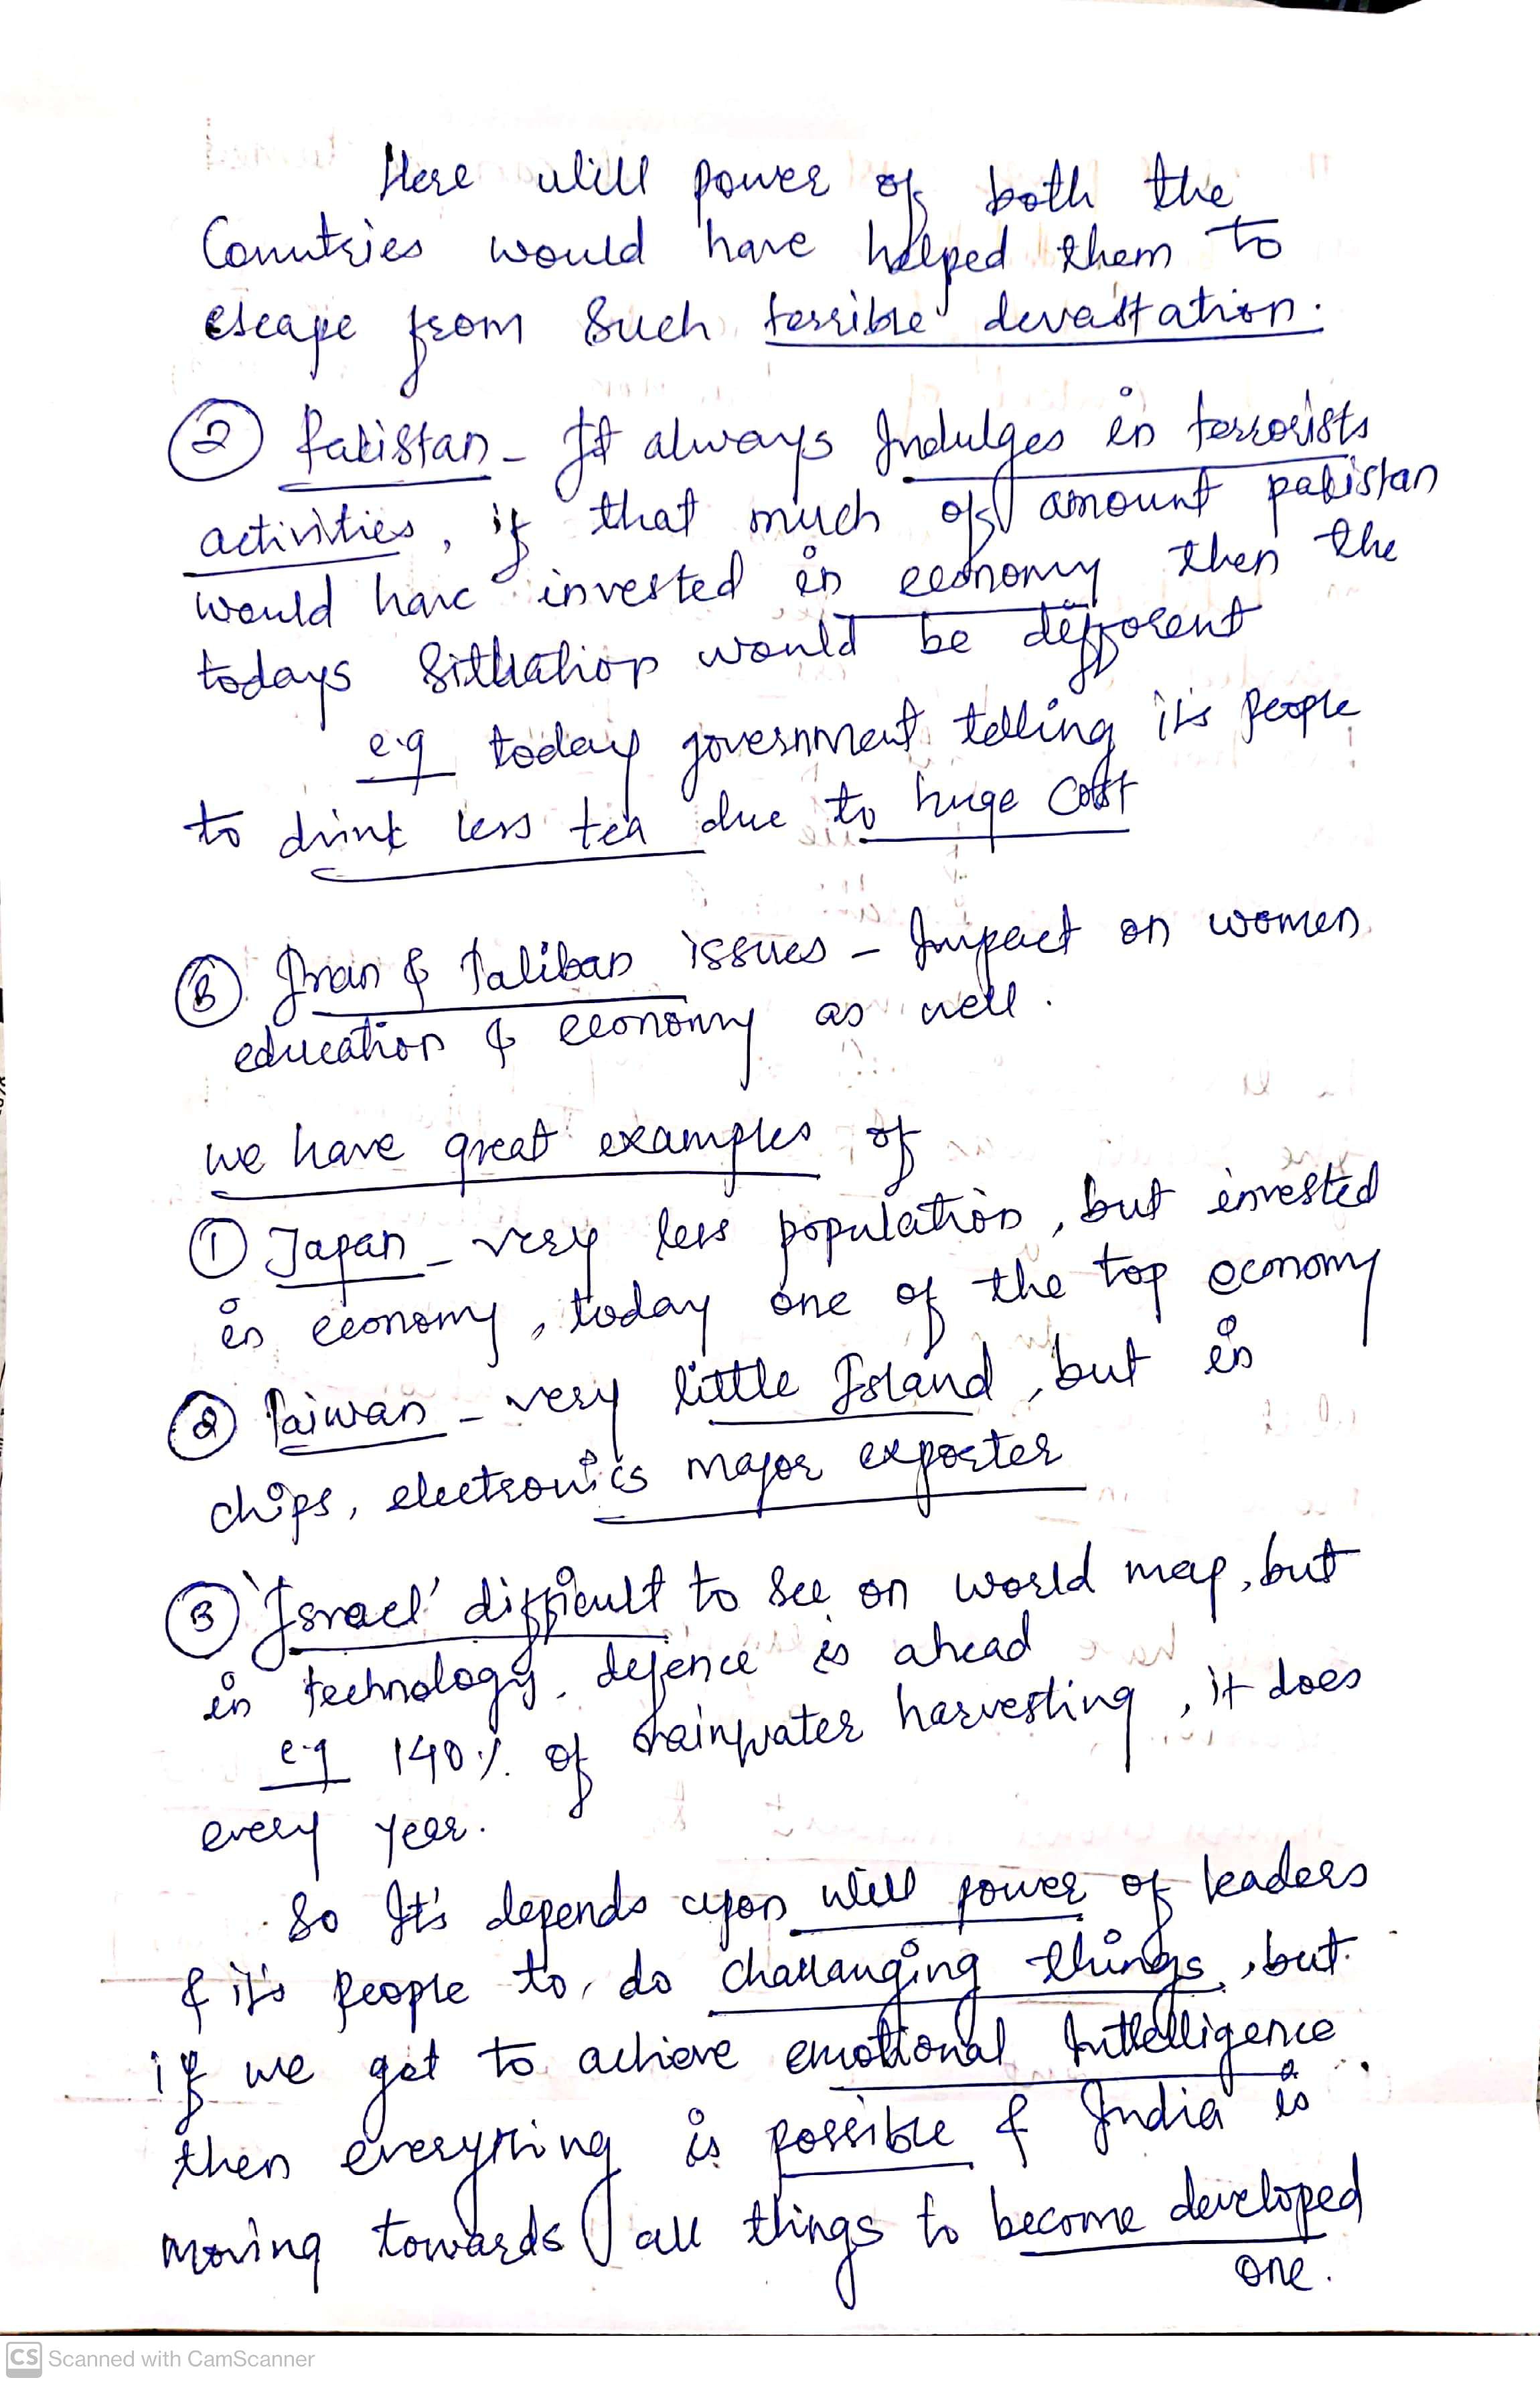 Here will power of both the
Countries would have helped them to
escape from such terrible devastation.
② Pakistan - It always Indulges in terrorists
activities, if that much of amount pakistan
would have invested in economy then the
todays Situation would be different
e.g today government telling it's people
to drink less tea due to huge cost
③ Iran & Taliban issues - Impact on women
education & economy as well.
we have great examples of
① Japan - very less population, but invested
in economy, today one of the top economy
② Taiwan - very little Island, but in
chips, electronics major exporter
③ 'Israel' difficult to see on world map, but
in technology, defence is ahead
e.g 140% of rainwater harvesting, it does
every year.
So It's depends upon will power of leaders
& it's people to do challanging things, but
if we get to achieve emotional Inttelligence
then everything is possible & India is
moving towards all things to become developed
one.
CS Scanned with CamScanner